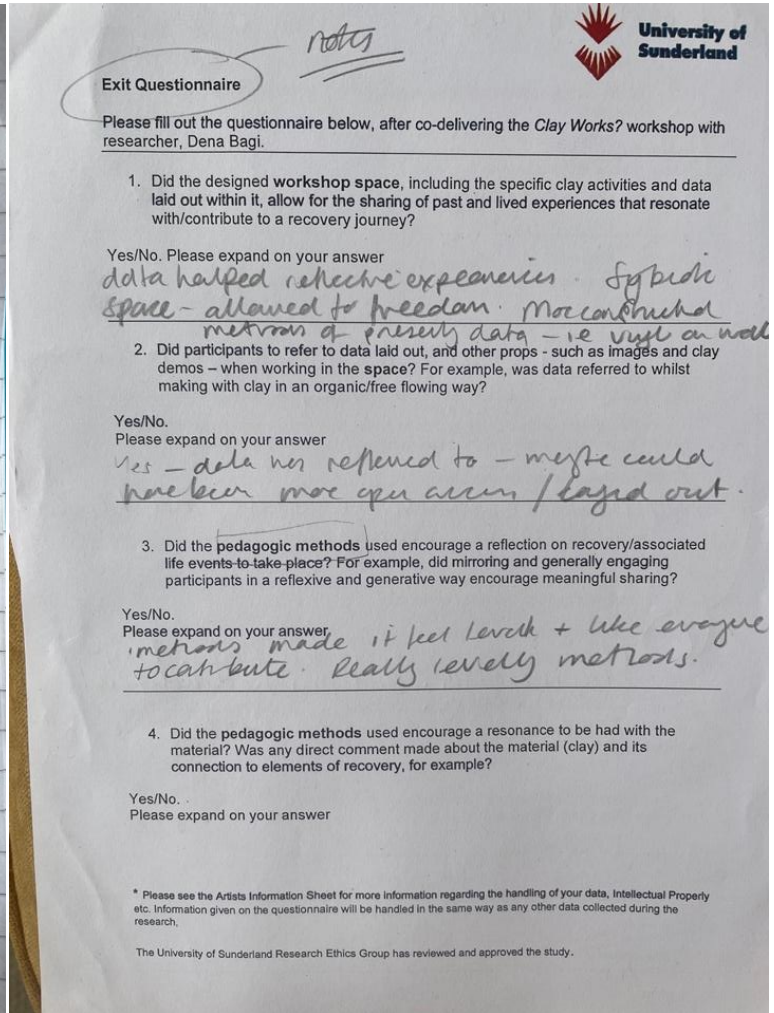 notes
University of
Sunderland
Exit Questionnaire
Please fill out the questionnaire below, after co-delivering the Clay Works? workshop with
researcher, Dena Bagi.
1. Did the designed workshop space, including the specific clay activities and data
laid out within it, allow for the sharing of past and lived experiences that resonate
with/contribute to a recovery journey?
Yes/No. Please expand on your answer
data helped reflective experiences.
space - allowed to freedom.
methods of data - ie on wall
2. Did participants to refer to data laid out, and other props - such as images and clay
demos – when working in the space? For example, was data referred to whilst
making with clay in an organic/free flowing way?
Yes/No.
Please expand on your answer
Yes - data was referred to - maybe could
have been more open / layed out.
3. Did the pedagogic methods used encourage a reflection on recovery/associated
life events to take place? For example, did mirroring and generally engaging
participants in a reflexive and generative way encourage meaningful sharing?
Yes/No.
Please expand on your answer
methods made it feel + like everyone
to contribute. Really methods.
4. Did the pedagogic methods used encourage a resonance to be had with the
material? Was any direct comment made about the material (clay) and its
connection to elements of recovery, for example?
Yes/No.
Please expand on your answer
* Please see the Artists Information Sheet for more information regarding the handling of your data, Intellectual Property
etc. Information given on the questionnaire will be handled in the same way as any other data collected during the
research,
The University of Sunderland Research Ethics Group has reviewed and approved the study.